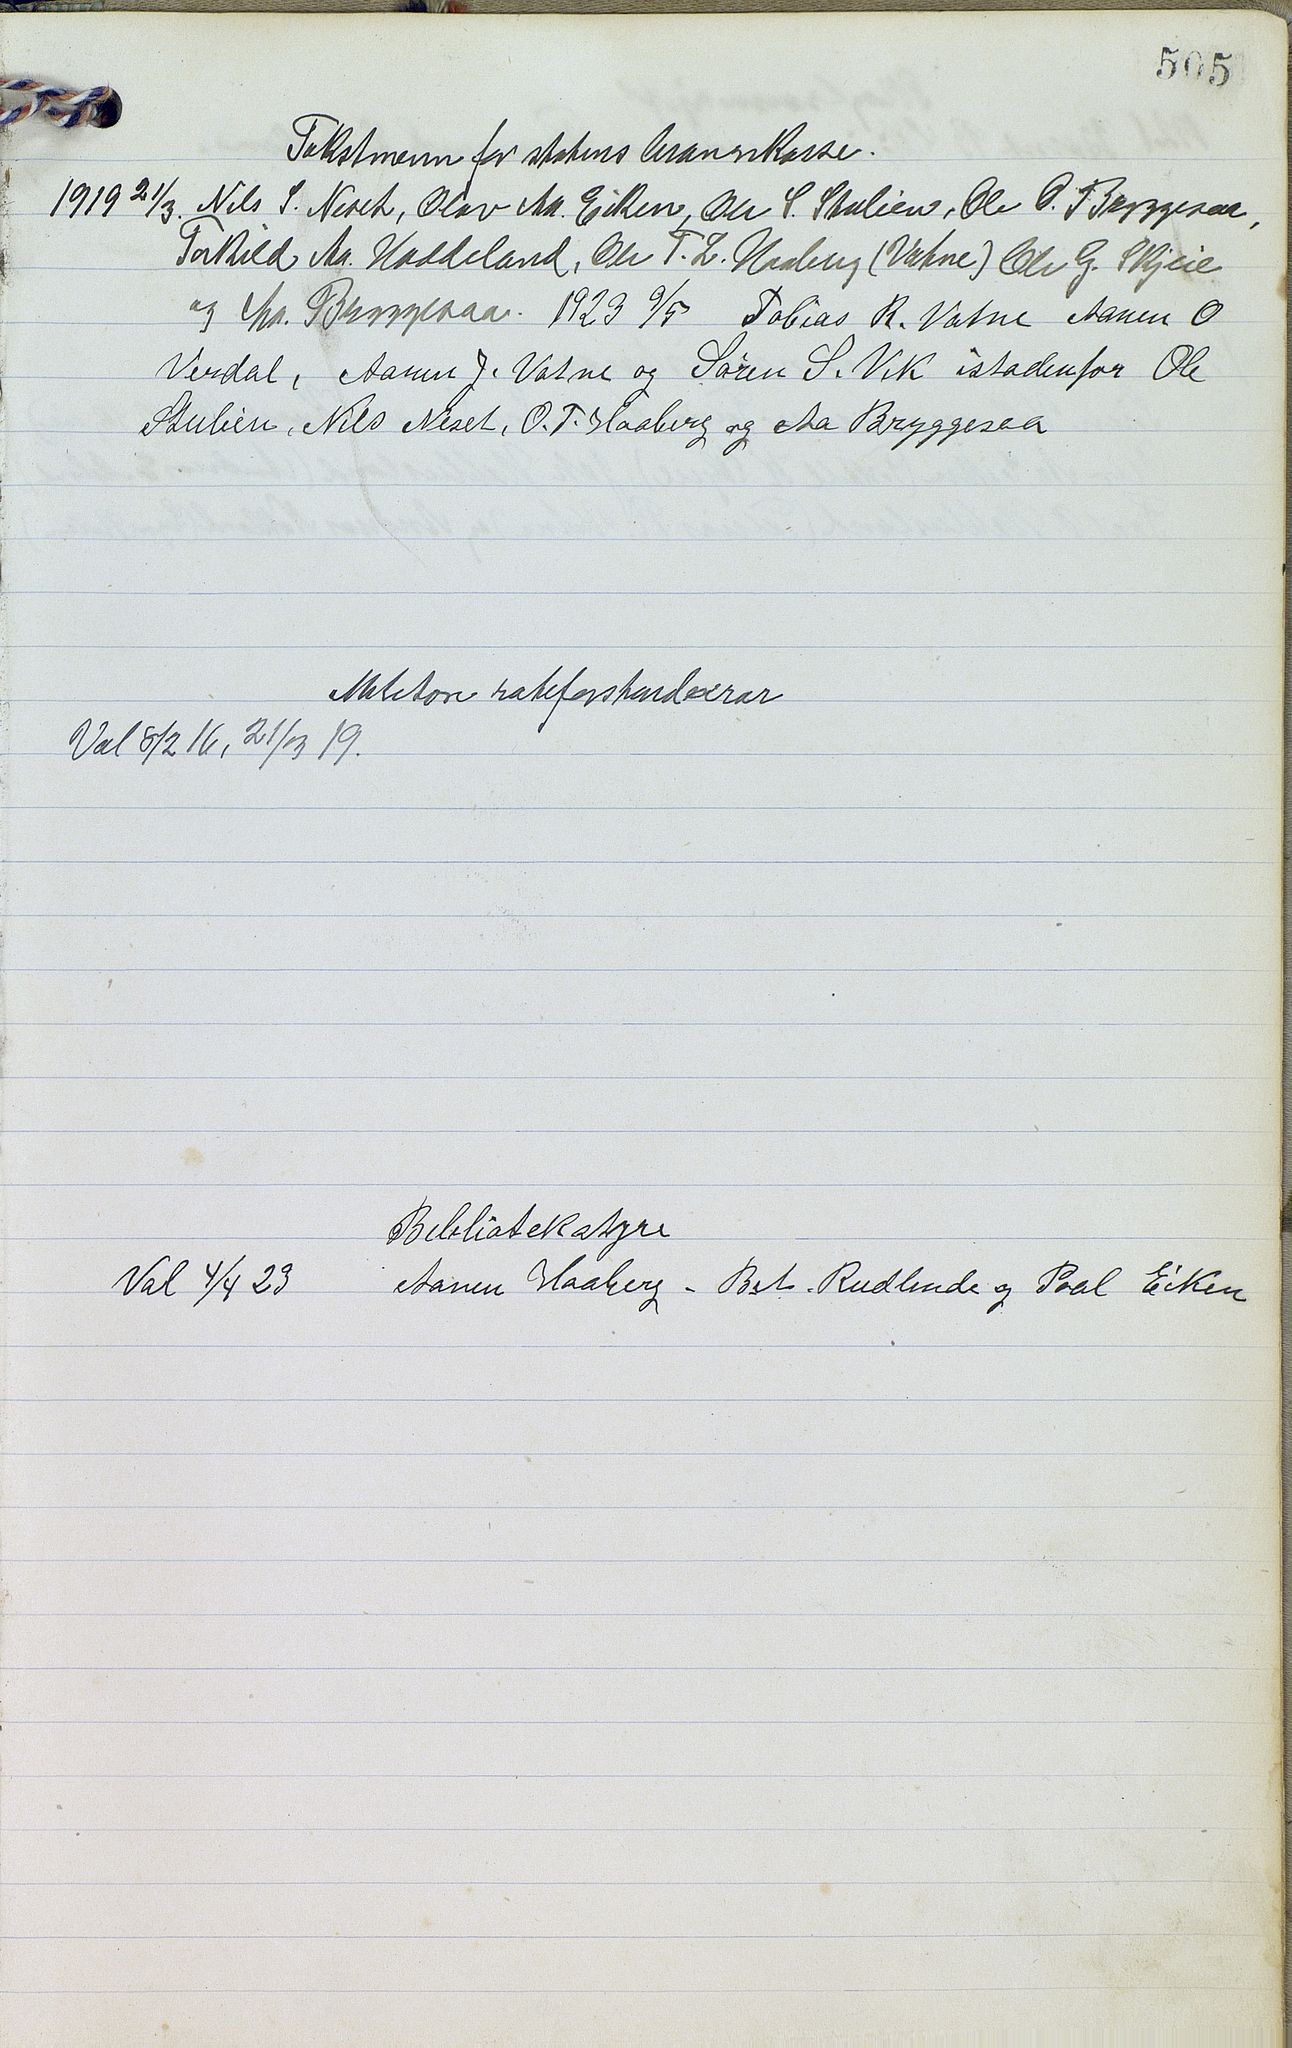 505
Takstmenn for statens brannkasse.
1919 21/3. Nils S. Neset, Olav Aa. Eiken, Ole S. Stulien, Ole O. Bryggesaa,
Torkild Aa. Haddeland, Ole T. L. Haaberg (Vatne) Ole G. Skjeie
og Aa. Bryggesaa. 1923 9/5 Tobias R. Vatne Aanen O
Verdal, Aanen J. Vatne og Søren S. Vik istadenfor Ole
Stulien, Nils Neset, O. T. Haaberg og Aa Bryggesaa
Val 8/2 16, 21/3 19.
Biblioteksstyre
Val 4/4 23 Aanen Haaberg - Bst. Rudlende og Paal Eiken